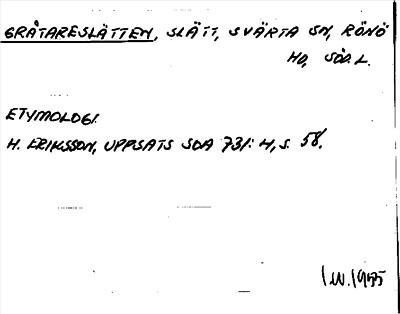 GRÅTARESLÄTTEN, SLÄTT, SVÄRTA SN, RÖNÖ
HD, SÖD. L.
ETYMOLOGI.
H. ERIKSSON, UPPSATS SOA 731:4, S. 58.
I.W. 1955